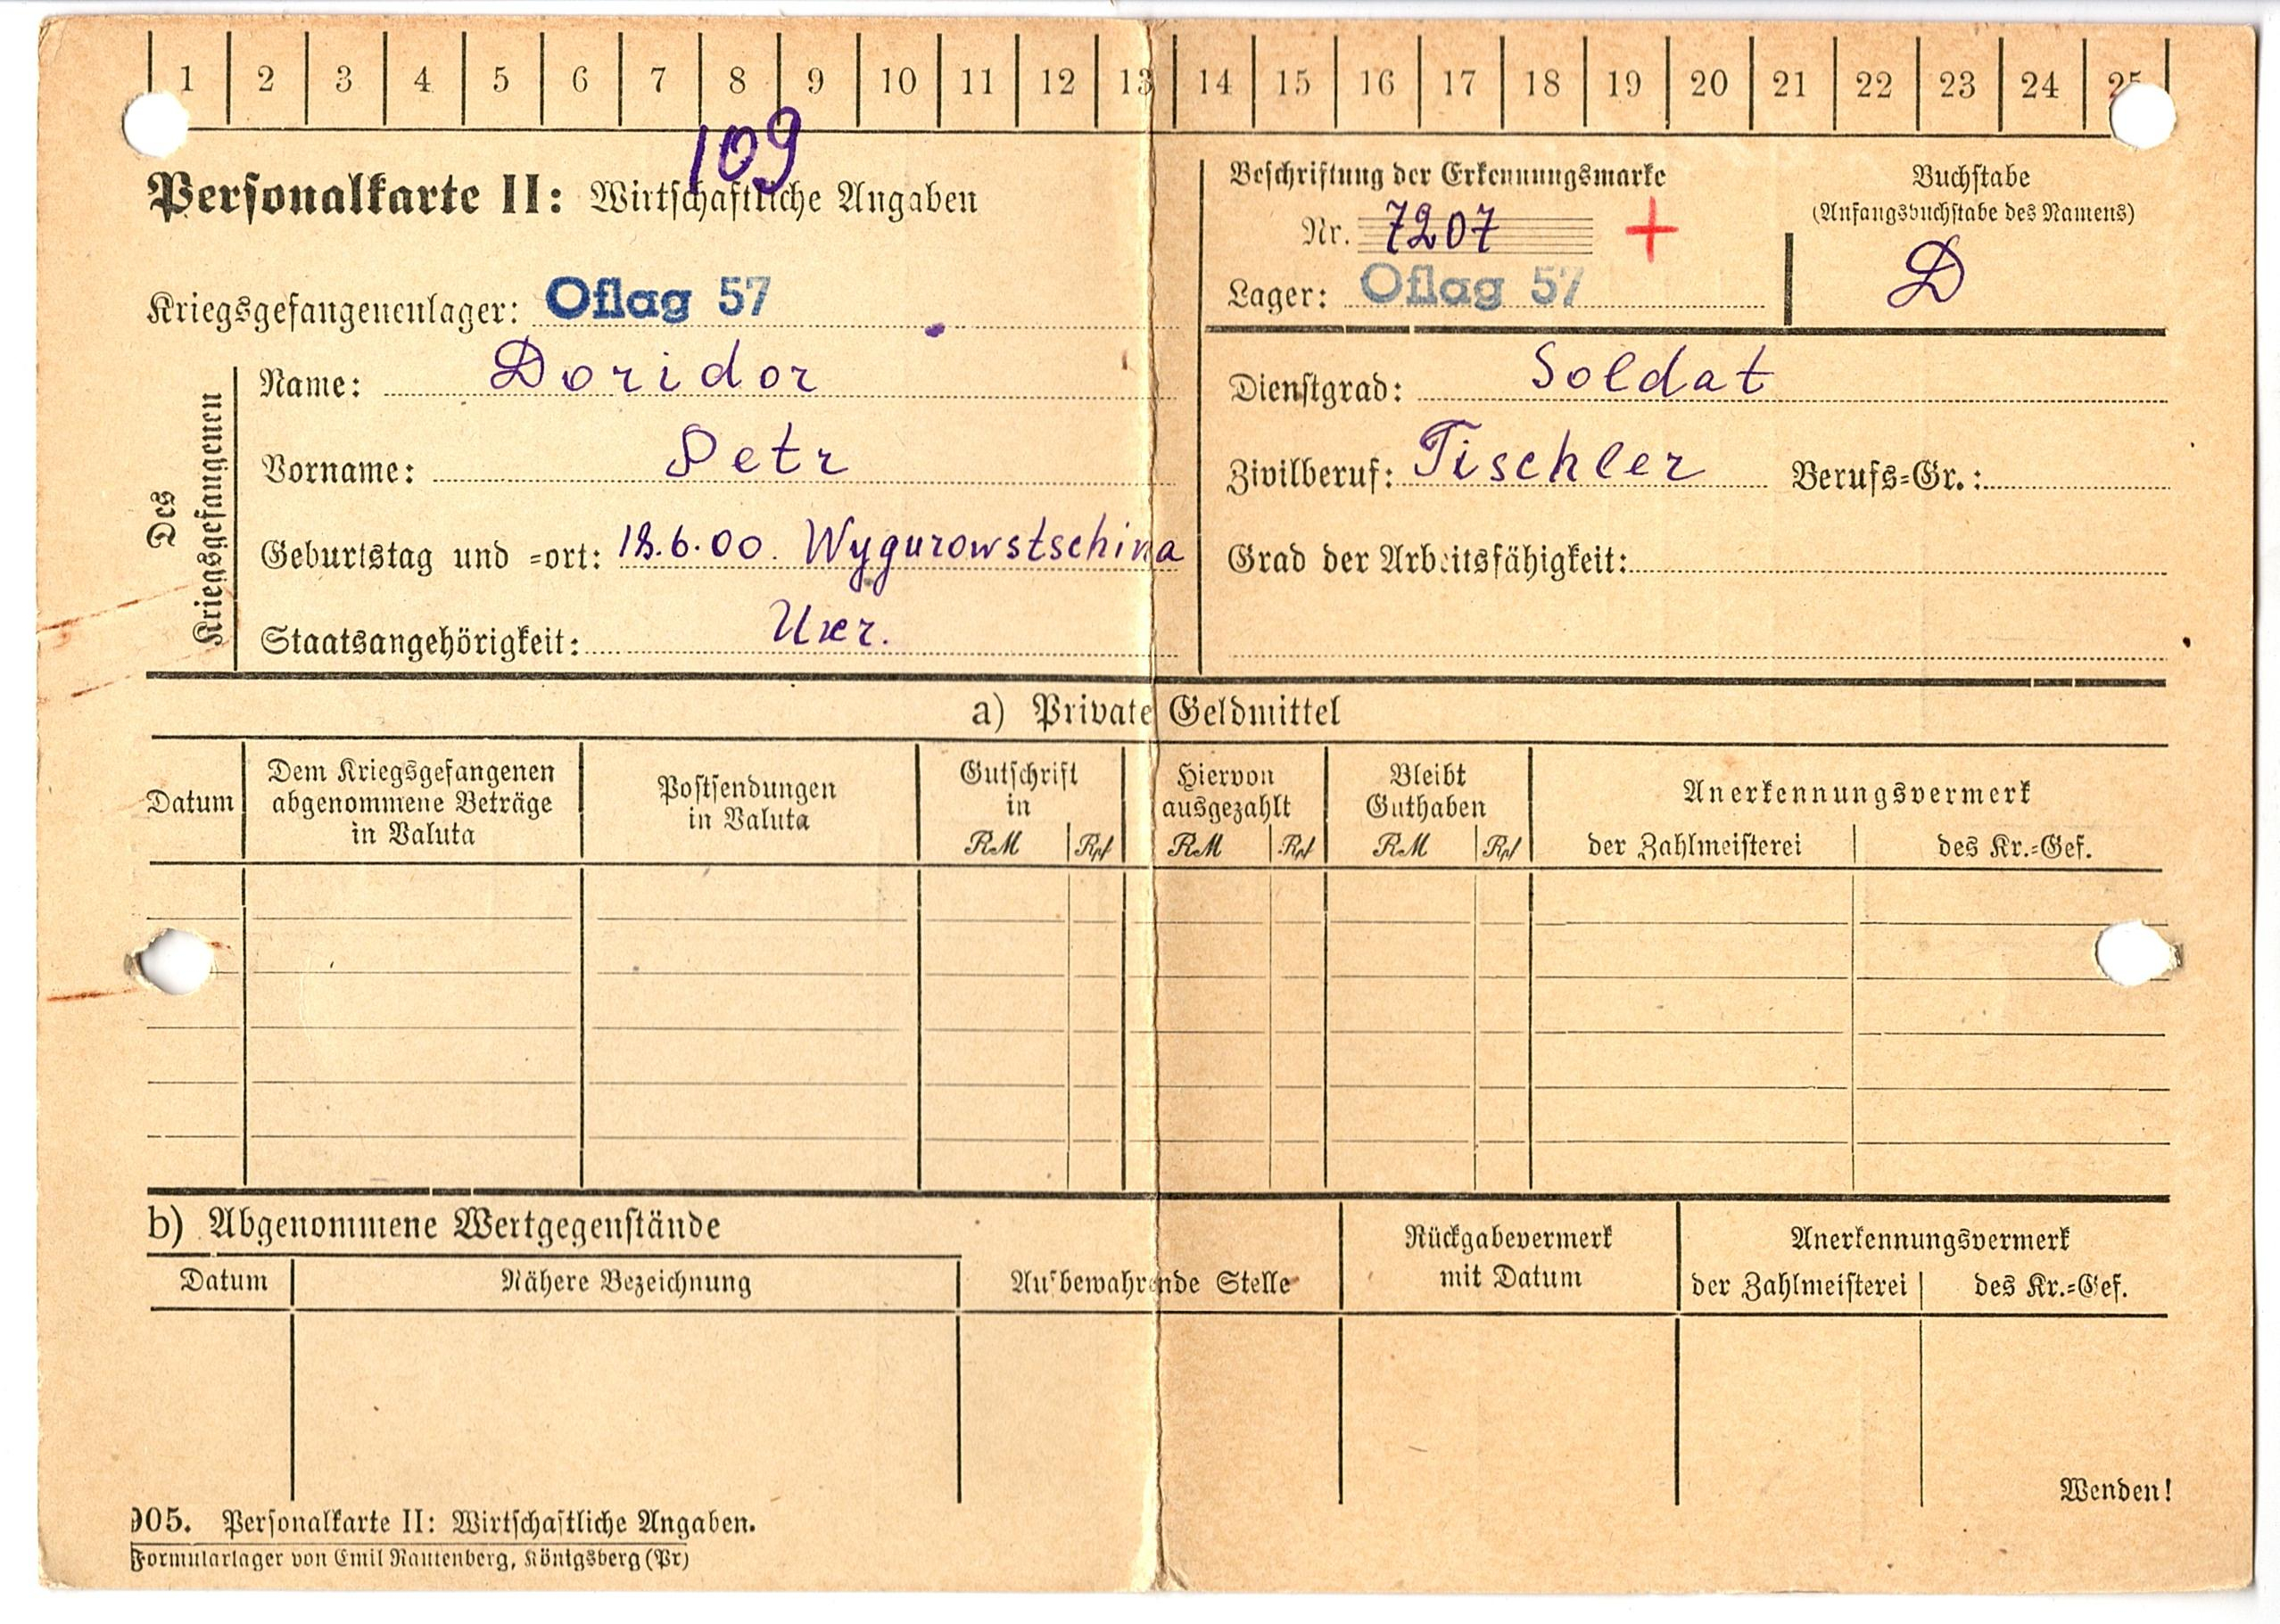 1 2 3 4 5 6 7 8 9 10 11 12 13 14 15 16 17 18 19 20 21 22 23 24 25
109
Personalkarte II: Wirtschaftliche Angaben
Beschriftung der Erkennungsmarke
Nr. 7207 +
Lager: Oflag 57
Buchstabe
(Anfangsbuchstabe des Namens)
D
Kriegsgefangenenlager: Oflag 57
Des Kriegsgefangenen
Name: Doridor
Vorname: Petr
Geburtstag und =ort: 18.6.00. Wygurowstschina
Staatsangehörigkeit: Uкr.
Dienstgrad: Soldat
Zivilberuf: Tischler Berufs=Gr.:
Grad der Arbeitsfähigkeit:
a) Private Geldmittel
Datum
Dem Kriegsgefangenen
abgenommene Beträge
in Valuta
Postsendungen
in Valuta
Gutschrift
in
RM Rpf
Hiervon
ausgezahlt
RM Rpf
Bleibt
Guthaben
RM Rpf
Anerkennungsvermerk
der Zahlmeisterei des Kr.=Gef.
b) Abgenommene Wertgegenstände
Datum Nähere Bezeichnung
Aufbewahrende Stelle
Rückgabevermerk
mit Datum
Anerkennungsvermerk
der Zahlmeisterei des Kr.=Gef.
Wenden!
905. Personalkarte II: Wirtschaftliche Angaben.
Formularlager von Emil Rautenberg, Königsberg (Pr)